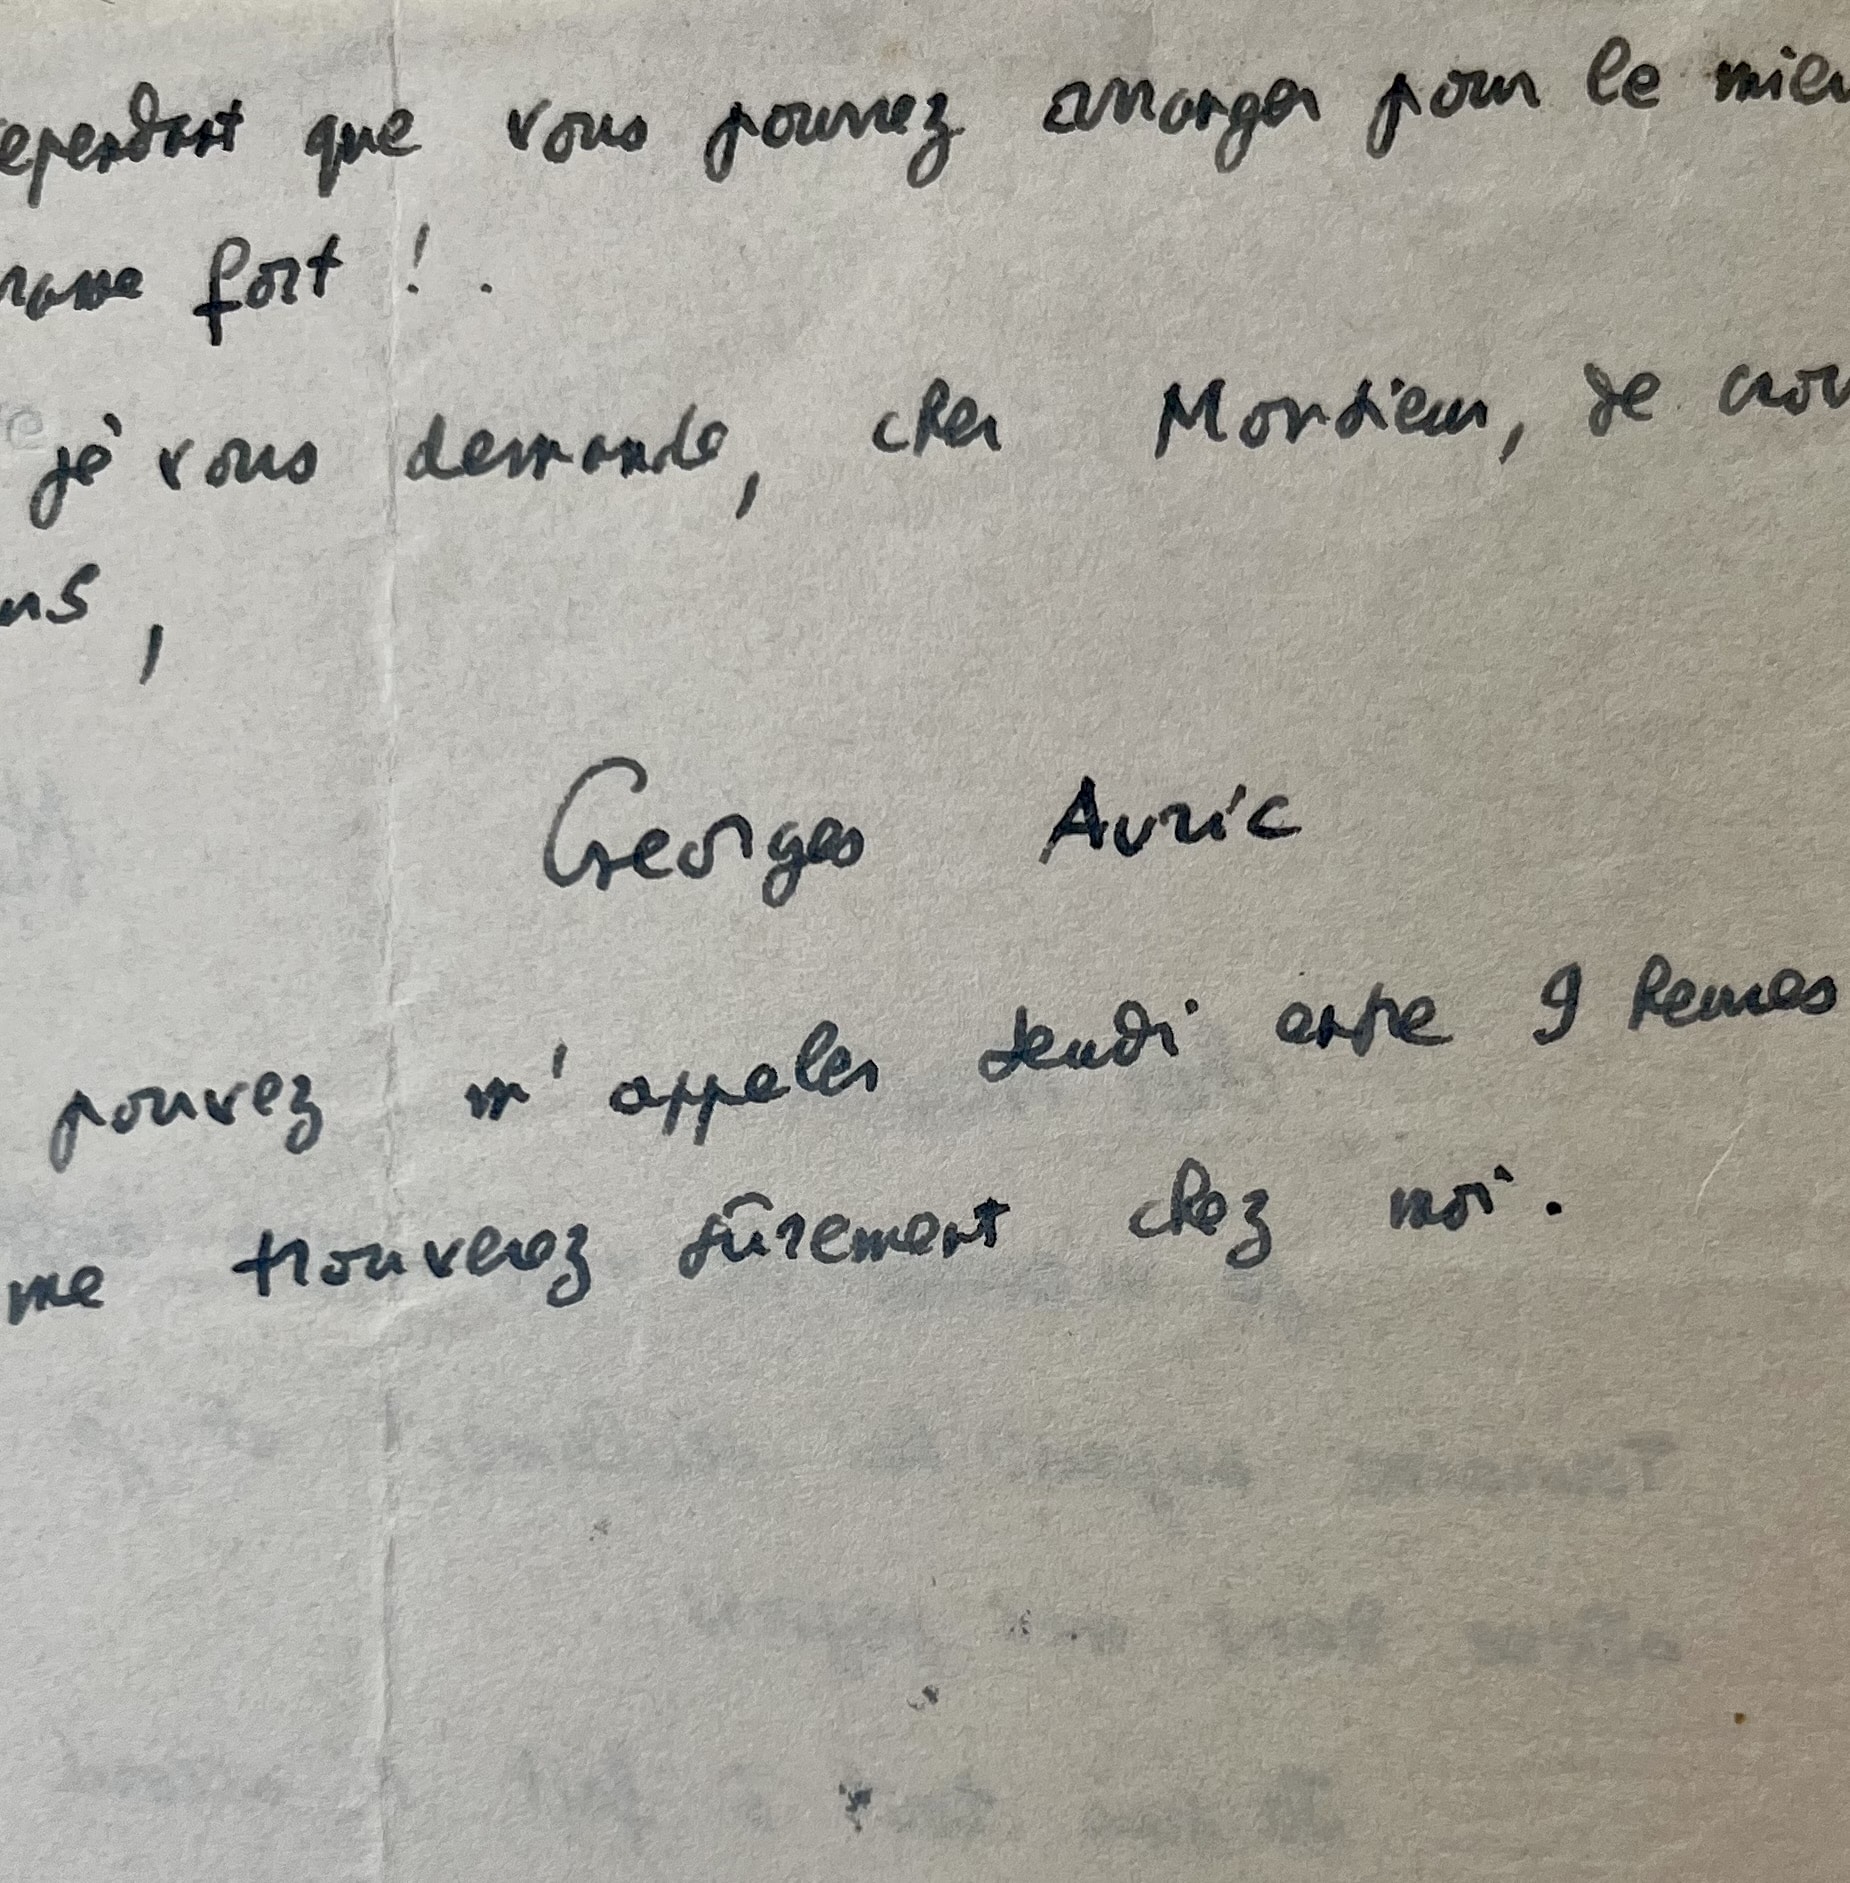 ependant que vous pourrez arranger pour le mieu
fort !.
je vous demande, cher Monsieur, de croi
ns,
Georges Auric
pouvez m'appeler Jeudi entre 9 heures
me trouverez sûrement chez moi.